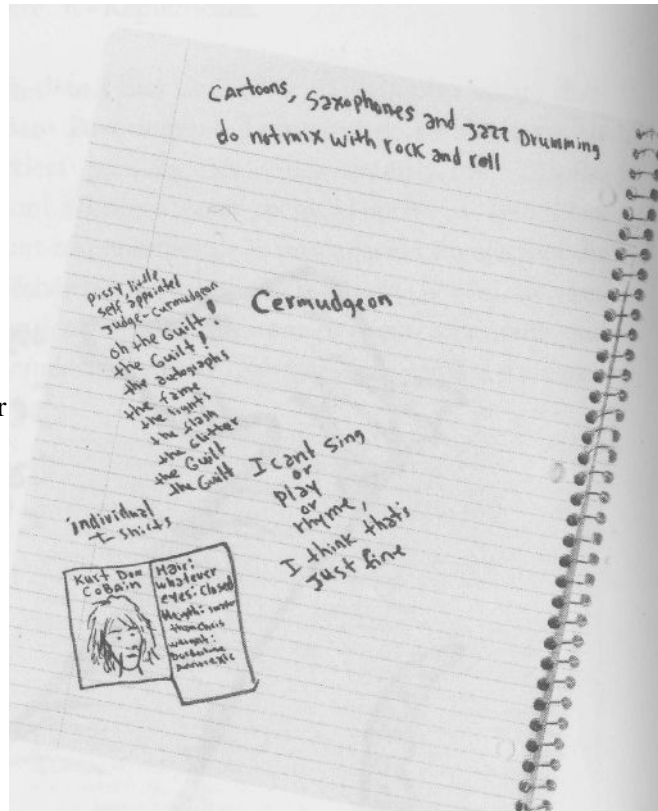 Cartoons, Saxophones and Jazz Drumming
do not mix with rock and roll
pissy little
self appointed
Judge-Curmudgeon
oh the Guilt!
the Guilt!
the autographs
the fame
the lights
the flash
the Glitter
the Guilt
the Guilt
Cermudgeon
I cant Sing
or
play
or
rhyme,
I think that's
Just fine
individual
T Shirts
Kurt Don
CoBain
Hair:
whatever
eyes: closed
Height:
than Chris
weight:
borderline
Annorexic
r